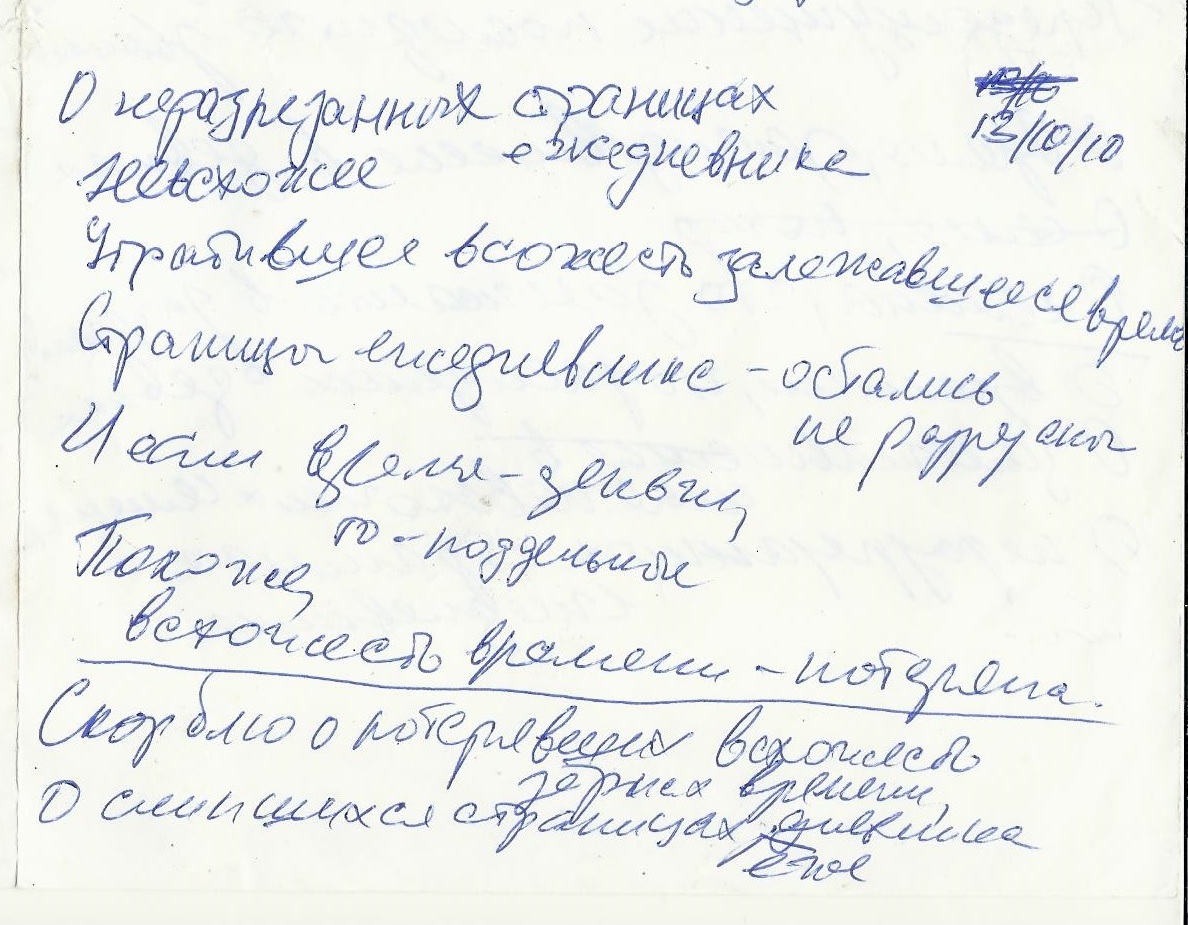 О неразрезанных страницах
ежедневника
13/10/10
Невсхожее
Утратившее всхожесть залежавшееся время
Страницы ежедневника - остались
не разрезаны
И если время - деньги,
то - поддельные
Похоже,
всхожесть времени - потеряна.
Скорблю о потерявших всхожесть
зёрнах времени,
О слипшихся страницах дневника